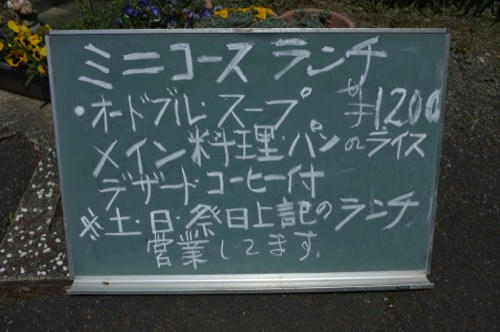 ミニコース ランチ
・オードブル・スープ ¥1200
メイン料理・パンorライス
デザート・コーヒー付
※土・日・祭日上記のランチ
営業してます.